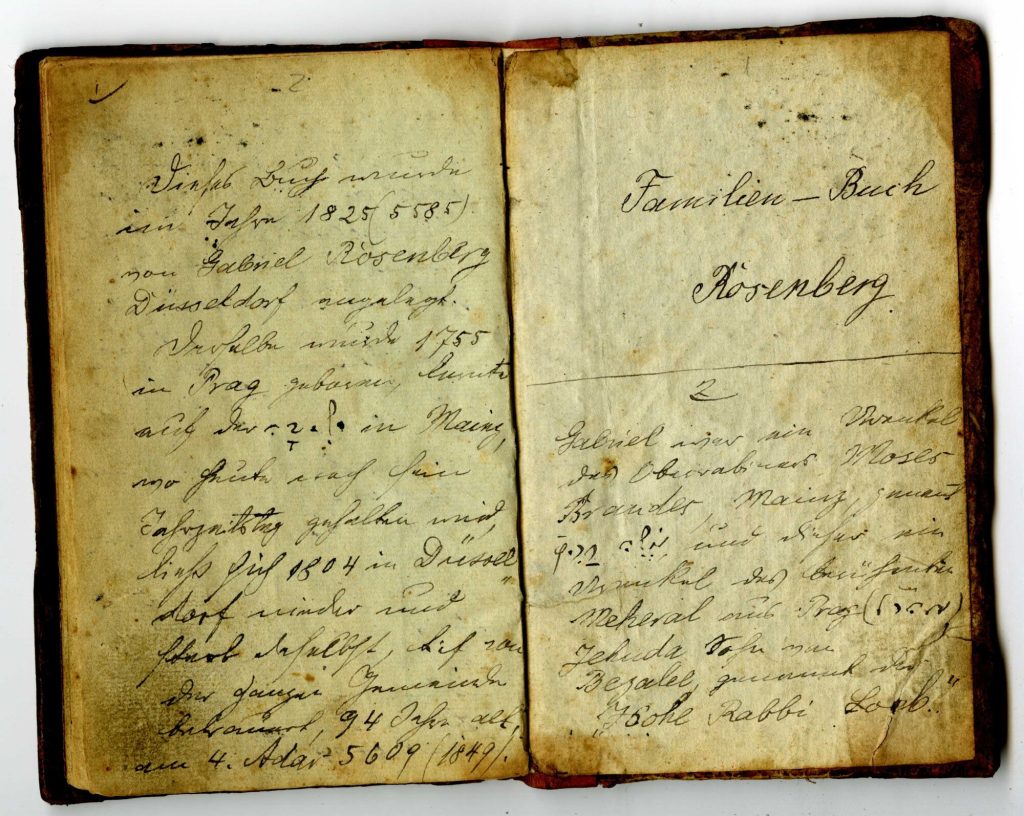 2
Dieses Buch wurde
im Jahre 1825 (5585)
von Gabriel Rosenberg
Düsseldorf angelegt.
Derselbe wurde 1755
in Prag geboren, lernte
auf der in Mainz,
wo heute noch sein
Jahrzeitstag gehalten wird,
ließ sich 1804 in Düssel
dorf nieder und
starb daselbst, tief von
der ganzen Gemeinde
betrauert, 94 Jahre alt,
am 4. Adar 5609 (1849).
1
Familien-Buch
Rosenberg
2
Gabriel war ein Urenkel
des Oberrabiners Moses
Brandes Mainz, genant
und dieser ein
Urenkel des berühmten
Meheral aus Prag
Jehuda Sohn von
Bezalel, genannt der
„Hohe Rabbi Loeb."